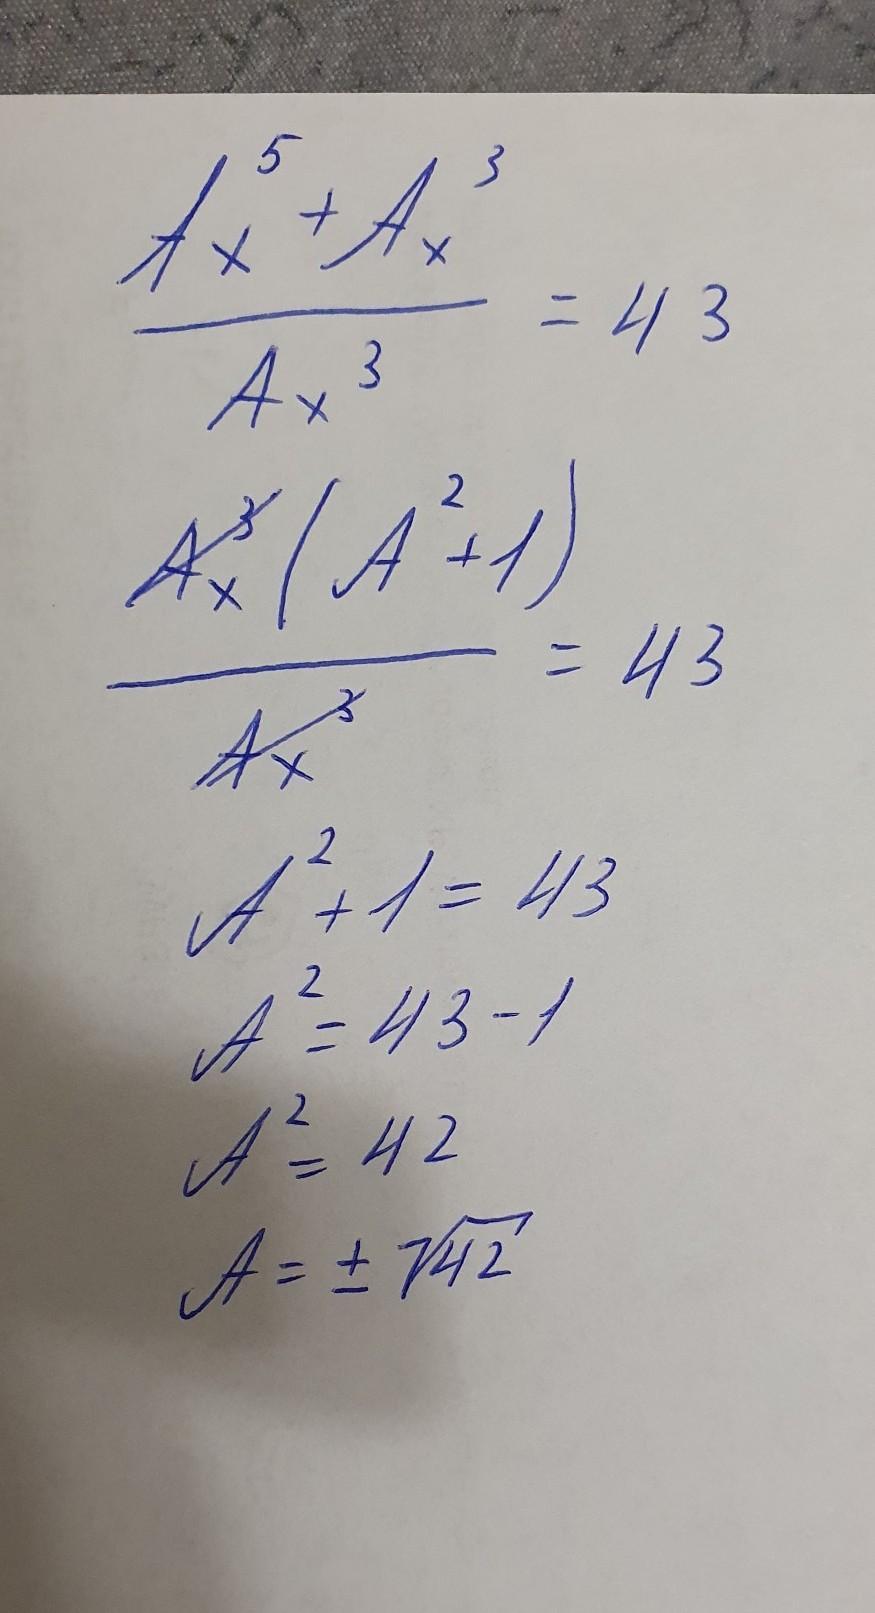 (A_x^5 + A_x^3) / A_x^3 = 43
A_x^3 (A^2 + 1) / A_x^3 = 43
A^2 + 1 = 43
A^2 = 43 - 1
A^2 = 42
A = ± √42